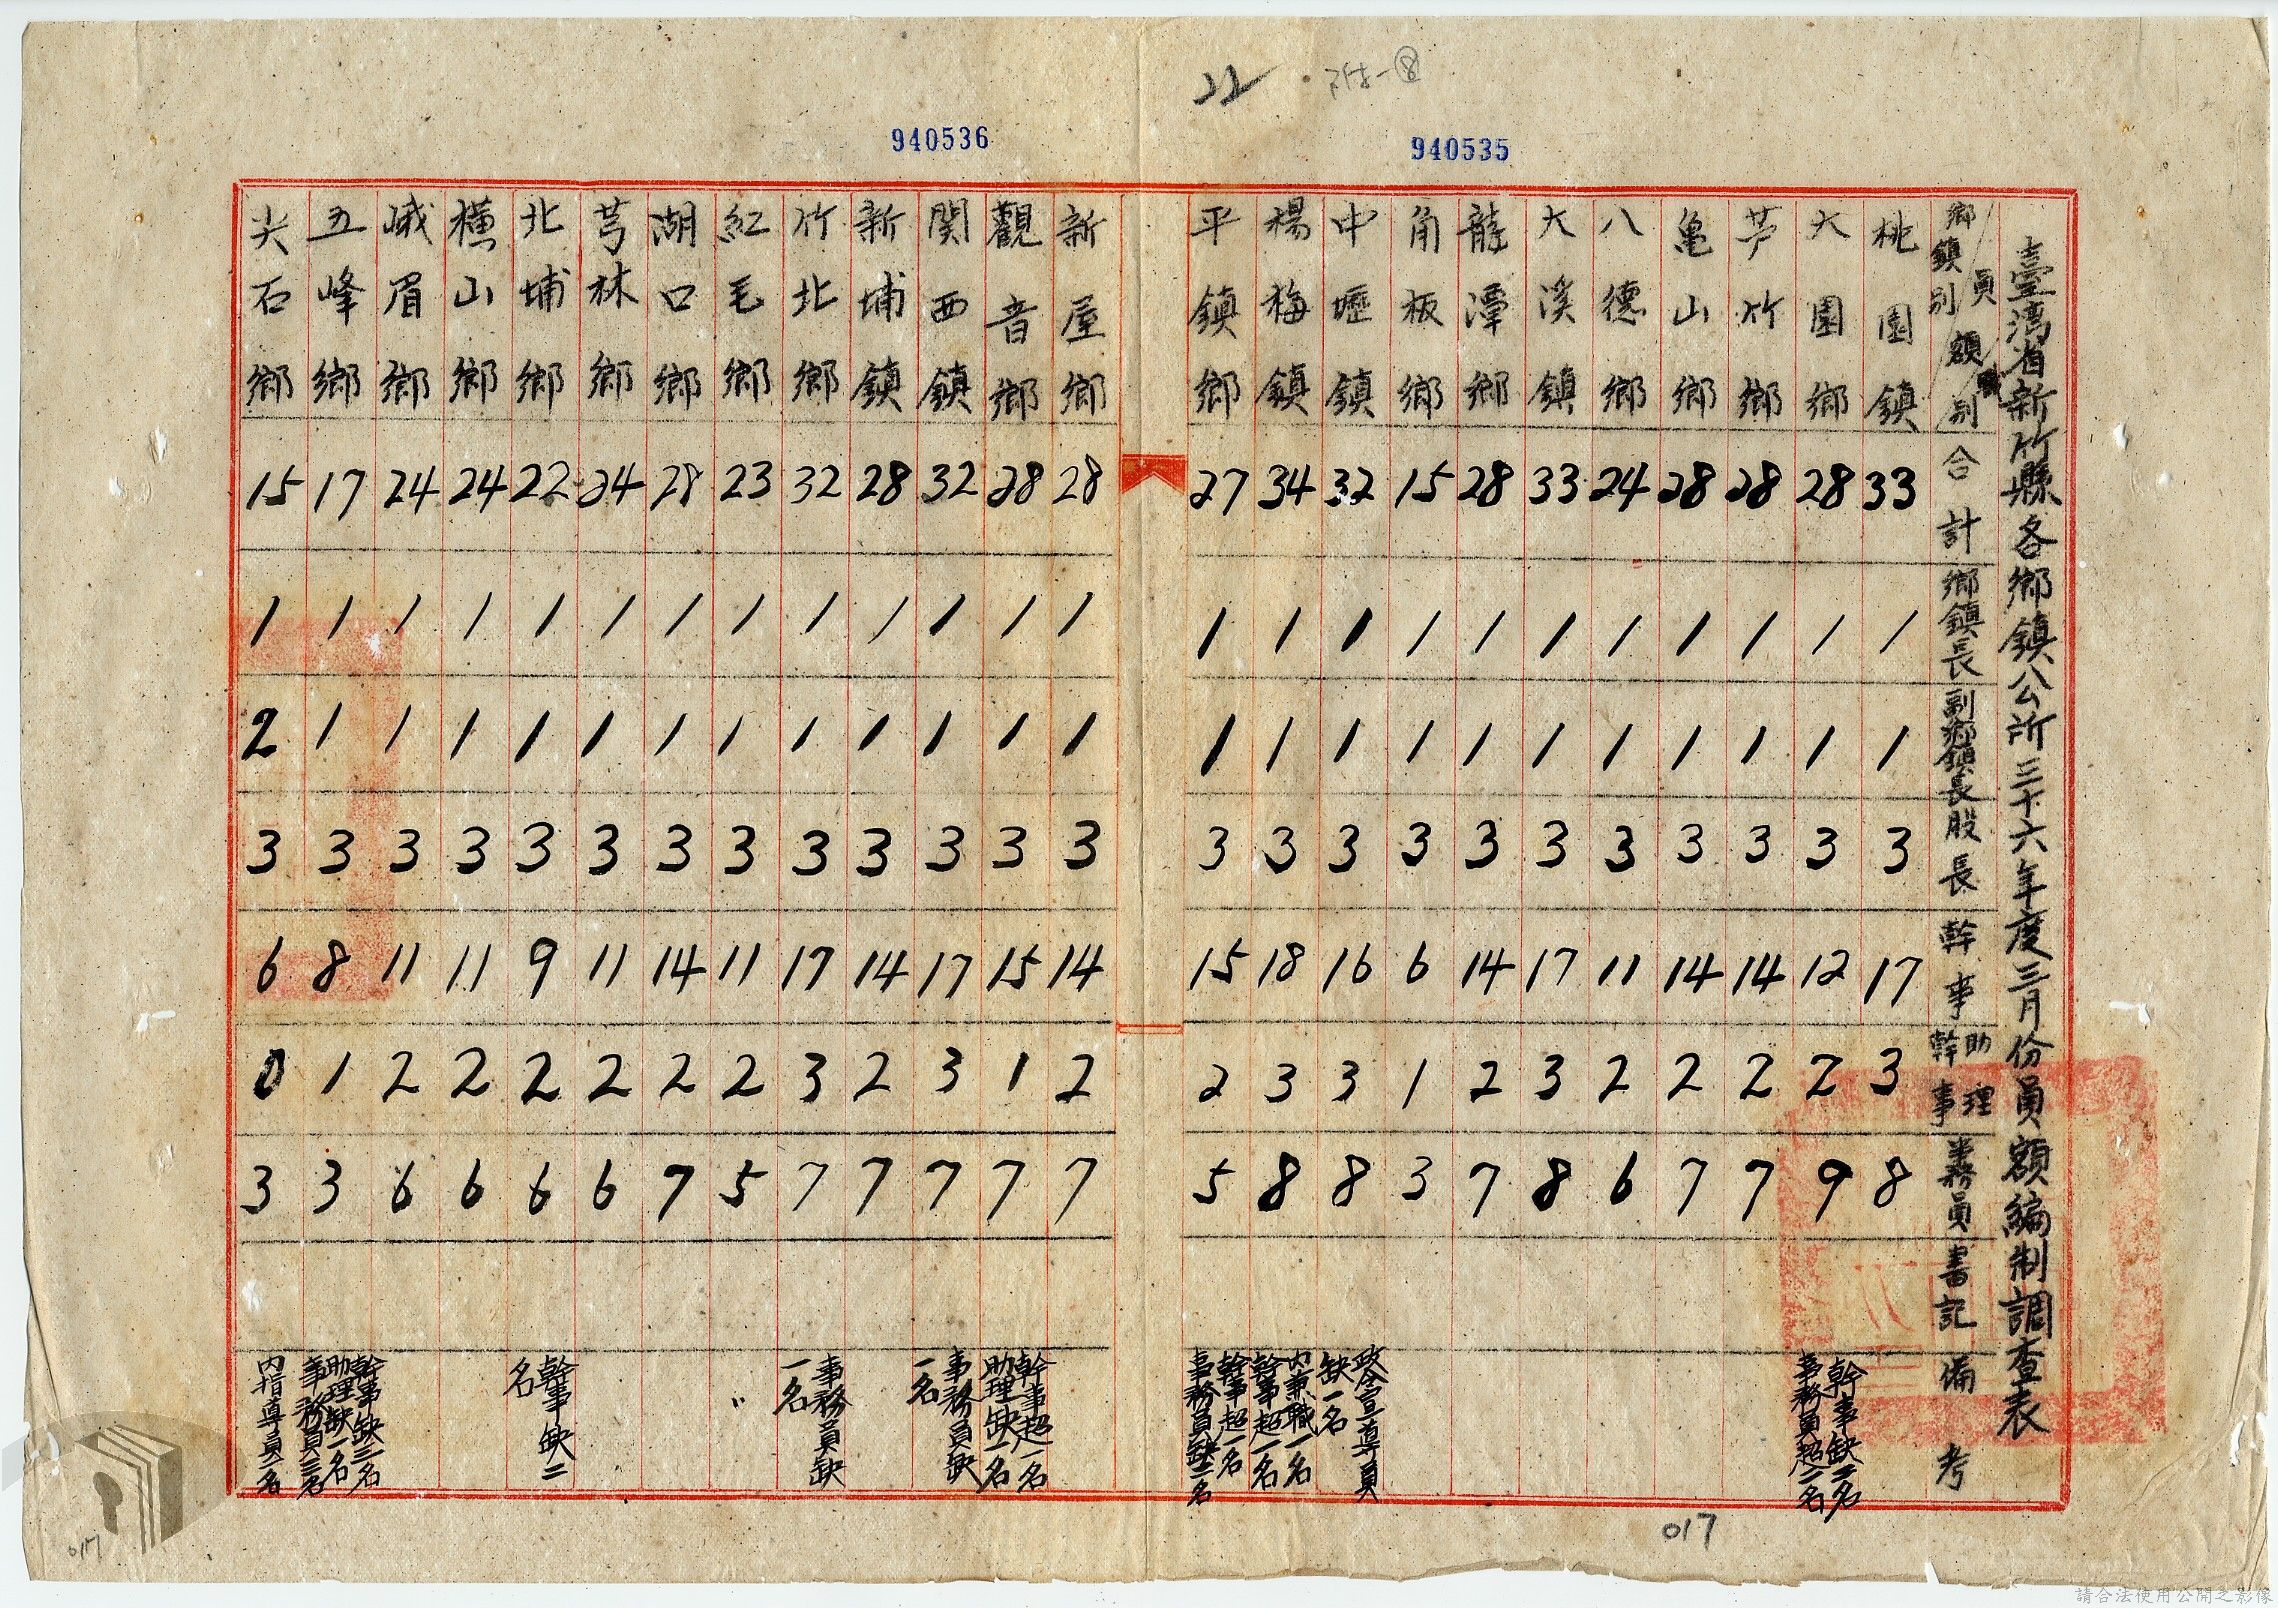 22
附-⑧
940535
940536
臺灣省新竹縣各鄉鎮公所三十六年度三月份員額編制調查表
鄉鎮別 員額 職別 合計 鄉鎮長 副鄉鎮長 股長 幹事 助理幹事 事務員 書記 備考
桃園鎮 33 1 1 3 17 3 8
大園鄉 28 1 1 3 12 2 9 幹事缺二名 事務員超二名
芦竹鄉 28 1 1 3 14 2 7
亀山鄉 28 1 1 3 14 2 7
八德鄉 24 1 1 3 11 2 6
大溪鎮 33 1 1 3 17 3 8
龍潭鄉 28 1 1 3 14 2 7
角板鄉 15 1 1 3 6 1 3
中壢鎮 32 1 1 3 16 3 8 政令宣導員缺一名
楊梅鎮 34 1 1 3 18 3 8 內兼職一名 幹事超一名
平鎮鄉 27 1 1 3 15 2 5 幹事超一名 事務員缺二名
新屋鄉 28 1 1 3 14 2 7
觀音鄉 28 1 1 3 15 1 7 幹事超一名 助理缺一名
関西鎮 32 1 1 3 17 3 7 事務員缺一名
新埔鎮 28 1 1 3 14 2 7
竹北鄉 32 1 1 3 17 3 7 事務員缺一名
紅毛鄉 23 1 1 3 11 2 5 〃
湖口鄉 28 1 1 3 14 2 7
芎林鄉 24 1 1 3 11 2 6
北埔鄉 22 1 1 3 9 2 6 幹事缺二名
橫山鄉 24 1 1 3 11 2 6
峨眉鄉 24 1 1 3 11 2 6
五峰鄉 17 1 1 3 8 1 3 幹事缺三名 助理缺一名 事務員三名
尖石鄉 15 1 2 3 6 0 3 內指導員二名
017
017
請合法使用公開之影像